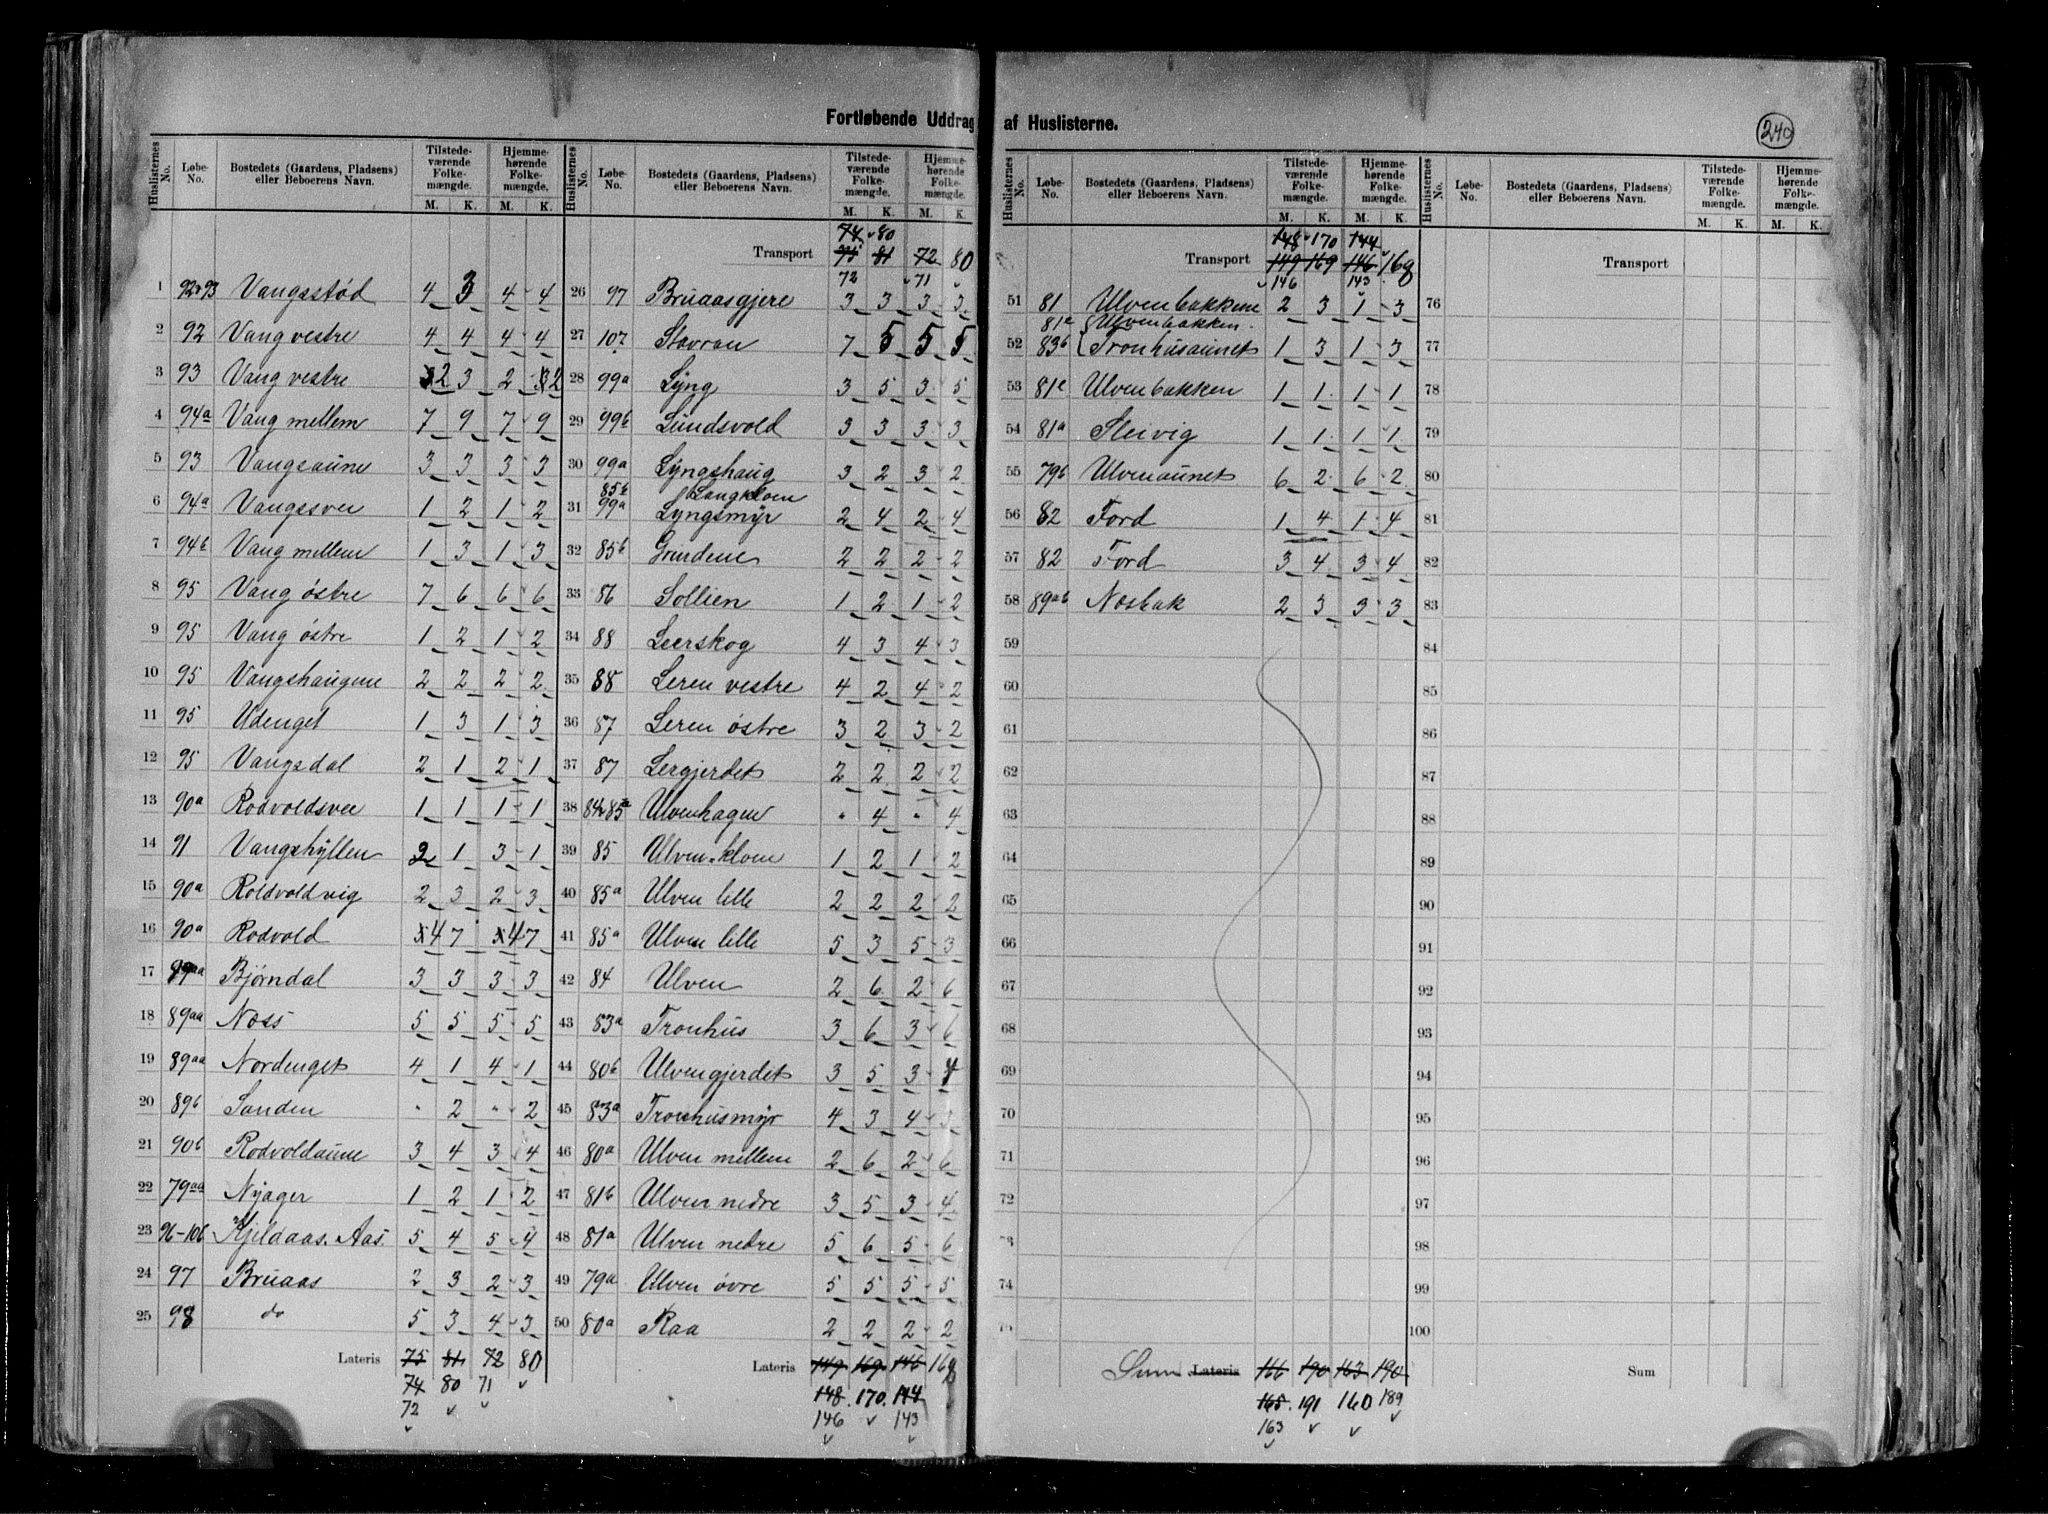 Fortløbende Uddrag af Huslisterne.
240
Huslisternes No. Løbe-No. Bostedets (Gaardens, Pladsens) eller Beboerens Navn. Tilstedeværende Folkemængde. M. K. Hjemmehørende Folkemængde. M. K.
1 92 & 93 Vangsstød 4 3 4 4
2 92 Vang vestre 4 4 4 4
3 93 Vang vestre 2 3 2 2
4 94a Vang mellem 7 9 7 9
5 93 Vangsaune 3 3 3 3
6 94a Vangsver 1 2 1 2
7 94b Vang mellem 1 3 1 3
8 95 Vang østre 7 6 6 6
9 95 Vang østre 1 2 1 2
10 95 Vangshaugene 2 2 2 2
11 95 Udenget 1 3 1 3
12 95 Vangsdal 2 1 2 1
13 90a Rodvoldsvee 1 1 1 1
14 91 Vangshyllen 2 1 3 1
15 90a Roldvoldvig 2 3 2 3
16 90a Rodvold 4 7 4 7
17 89aa Bjørndal 3 3 3 3
18 89aa Noss 5 5 5 5
19 89aa Nordenget 4 1 4 1
20 89b Sanden " 2 " 2
21 90b Rodvoldaune 3 4 3 4
22 79aa Nyager 1 2 1 2
23 96-106 Kjeldaas. Aas. 5 4 5 4
24 97 Bruaas 2 3 2 3
25 98 do 5 3 4 3
Lateris 75 81 72 80
74 80 71
72
Huslisternes No. Løbe-No. Bostedets (Gaardens, Pladsens) eller Beboerens Navn. Tilstedeværende Folkemængde. M. K. Hjemmehørende Folkemængde. M. K.
74 80
Transport 75 81 72 80
72 71
26 97 Bruaasgjere 3 3 3 3
27 107 Stavran 7 5 5 5
28 99a Lyng 3 5 3 5
29 99b Lundsvold 3 3 3 3
30 99a Lyngshaug 3 2 3 2
85b Langkloen
31 99a Lyngsmyr 2 4 2 4
32 85b Grindene 2 2 2 2
33 86 Sollien 1 2 1 2
34 88 Leerskog 4 3 4 3
35 88 Leren vestre 4 2 4 2
36 87 Leren østre 3 2 3 2
37 87 Lergjerdet 2 2 2 2
38 84 & 85a Ulvenhagen " 4 " 4
39 85 Ulven-kloen 1 2 1 2
40 85a Ulven lille 2 2 2 2
41 85a Ulven lille 5 3 5 3
42 84 Ulven 2 6 2 6
43 83a Tronhus 3 6 3 6
44 80b Ulvengjerdet 3 5 3 4
45 83a Tronhusmyr 4 3 4 3
46 80a Ulven mellem 2 6 2 6
47 81b Ulven nedre 3 5 3 4
48 81a Ulven nedre 5 6 5 6
49 79a Ulven øvre 5 5 5 5
50 80a Raa 2 2 2 2
Lateris 149 169 146 168
148 170 144
146 143
Huslisternes No. Løbe-No. Bostedets (Gaardens, Pladsens) eller Beboerens Navn. Tilstedeværende Folkemængde. M. K. Hjemmehørende Folkemængde. M. K.
148 170 144
Transport 149 169 146 168
146 143
51 81 Ulvenbakkene 2 3 1 3
81c Ulvenbakken
52 83b Tronhusaunet 1 3 1 3
53 81c Ulvenbakken 1 1 1 1
54 81a Sleivig 1 1 1 1
55 79b Ulvenaunet 6 2 6 2
56 82 Ford 1 4 1 4
57 82 Ford 3 4 3 4
58 89ab Nosbak 2 3 3 3
59
60
61
62
63
64
65
66
67
68
69
70
71
72
74
Sum Lateris 166 190 163 190
165 191 160 189
163
Huslisternes No. Løbe-No. Bostedets (Gaardens, Pladsens) eller Beboerens Navn. Tilstedeværende Folkemængde. M. K. Hjemmehørende Folkemængde. M. K.
Transport
76
77
78
79
80
81
82
83
84
85
86
87
88
89
90
91
92
93
94
95
96
97
98
99
100
Sum